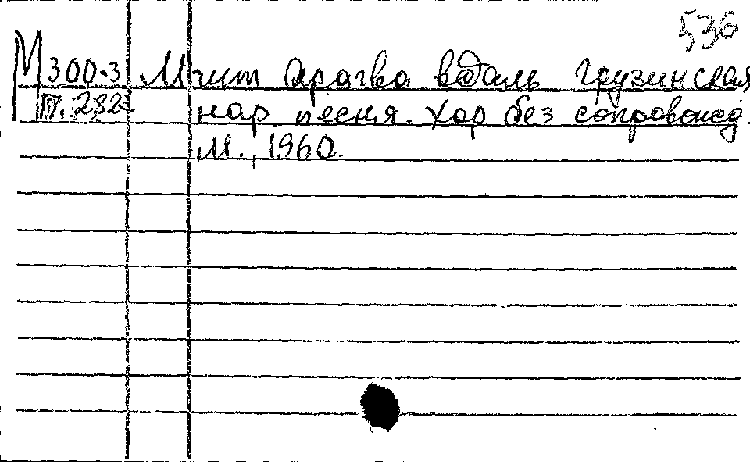 536
М 300-3 Мчит Арагва вдаль Грузинская
П.282 нар. песня. Хор без сопровожд.
М., 1960.